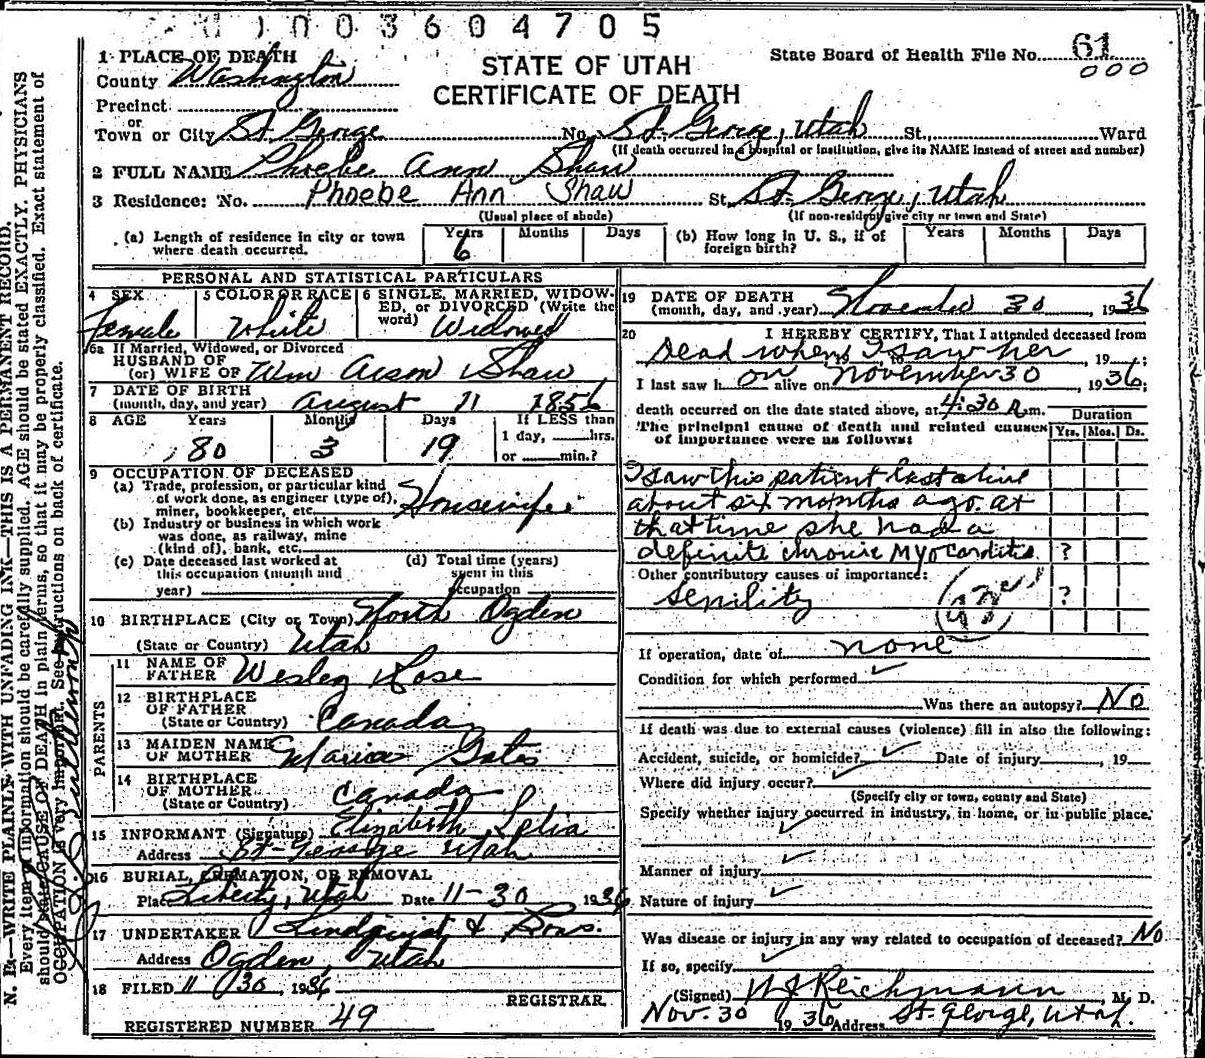 0003604705
1 PLACE OF DEATH
County Washington
Precinct
or
Town or City St. George No. St. George, Utah St. Ward
(If death occurred in a hospital or institution, give its NAME instead of street and number)
STATE OF UTAH
CERTIFICATE OF DEATH
State Board of Health File No. 61
000
2 FULL NAME Phoebe Ann Shaw
3 Residence: No. Phoebe Ann Shaw St. St. George, Utah
(Usual place of abode) (If non-resident give city or town and State)
(a) Length of residence in city or town where death occurred. Years 6 Months Days
(b) How long in U. S., if of foreign birth? Years Months Days
PERSONAL AND STATISTICAL PARTICULARS
4 SEX Female
5 COLOR OR RACE White
6 SINGLE, MARRIED, WIDOWED, or DIVORCED (Write the word) Widowed
6a If Married, Widowed, or Divorced
HUSBAND OF
(or) WIFE OF Wm Shaw
7 DATE OF BIRTH
(month, day, and year) August 11 1856
8 AGE Years 80 Months 3 Days 19 If LESS than
1 day, hrs.
or min.?
9 OCCUPATION OF DECEASED
(a) Trade, profession, or particular kind
of work done, as engineer (type of),
miner, bookkeeper, etc. Housewife
(b) Industry or business in which work
was done, as railway, mine
(kind of), bank, etc.
(c) Date deceased last worked at
this occupation (month and
year)
(d) Total time (years)
spent in this
occupation
10 BIRTHPLACE (City or Town) North Ogden
(State or Country) Utah
PARENTS
11 NAME OF
FATHER Wesley Rose
12 BIRTHPLACE
OF FATHER
(State or Country) Canada
13 MAIDEN NAME
OF MOTHER Maria Gates
14 BIRTHPLACE
OF MOTHER
(State or Country) Canada
15 INFORMANT (Signature) Elizabeth Lelia
Address St. George Utah
16 BURIAL, CREMATION, OR REMOVAL
Place Liberty, Utah Date 11-30 1936
17 UNDERTAKER Lindquist & Sons.
Address Ogden, Utah
18 FILED 11 30, 1936
REGISTRAR
REGISTERED NUMBER 49
19 DATE OF DEATH
(month, day, and year) November 30, 1936
20 I HEREBY CERTIFY, That I attended deceased from
Dead when I saw her, 19 ;
I last saw h on alive on November 30, 1936;
death occurred on the date stated above, at 4:30 A.m. Duration
The principal cause of death and related causes
of importance were as follows: Yrs. Mos. Ds.
I saw this patient last alive
about six months ago. at
that time she had a
definite chronic Myocarditis. ?
Other contributory causes of importance:
Senility ?
If operation, date of none
Condition for which performed
Was there an autopsy? No
If death was due to external causes (violence) fill in also the following:
Accident, suicide, or homicide? Date of injury, 19
Where did injury occur?
(Specify city or town, county and State)
Specify whether injury occurred in industry, in home, or in public place.
Manner of injury
Nature of injury
Was disease or injury in any way related to occupation of deceased? No
If so, specify
(Signed) W J Reichmann, M. D.
Nov. 30 1936 Address St. George, Utah.
N. B.—WRITE PLAINLY WITH UNFADING INK—THIS IS A PERMANENT RECORD.
Every item of information should be carefully supplied. AGE should be stated EXACTLY. PHYSICIANS
should state CAUSE OF DEATH in plain terms, so that it may be properly classified. Exact statement of
OCCUPATION is very important. See instructions on back of certificate.